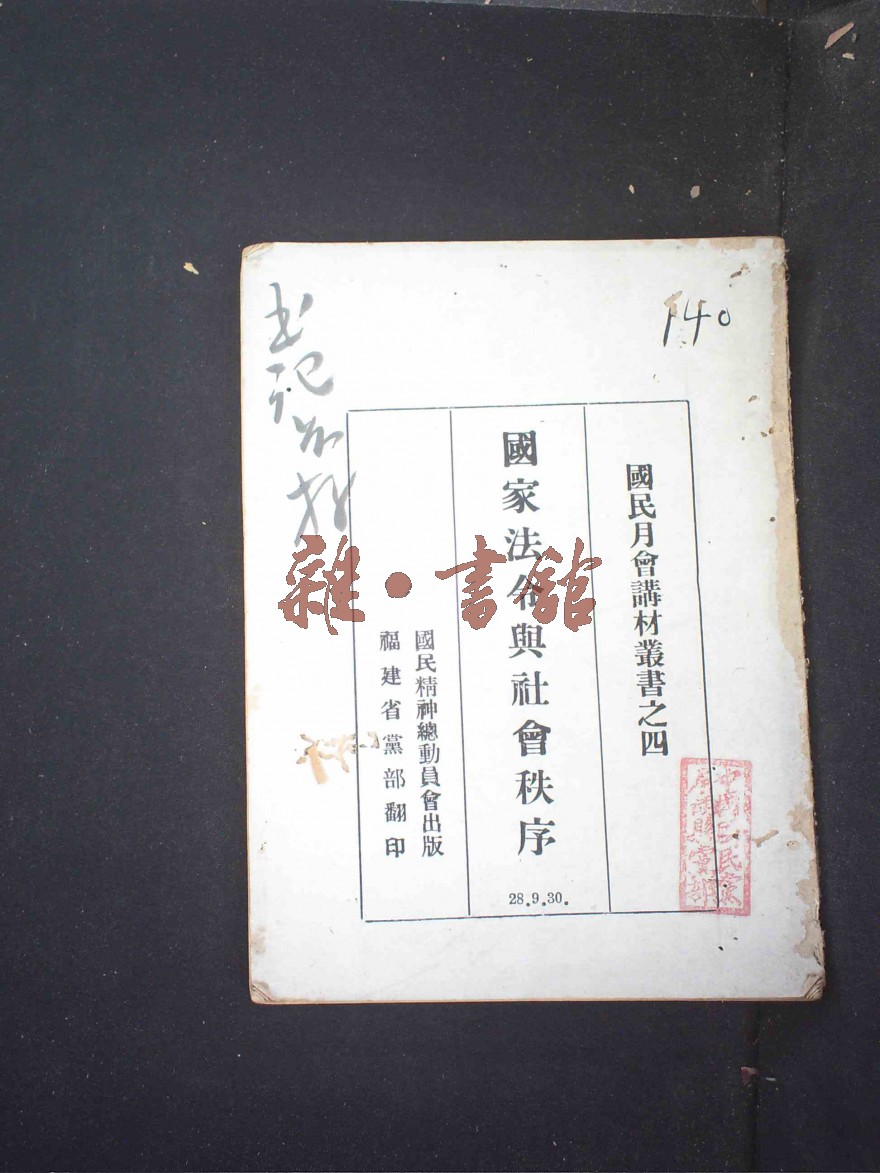 140
國民月會講材叢書之四
國家法令與社會秩序
28.9.30.
國民精神總動員會出版
福建省黨部翻印
雜·書館
書記
中國國民黨
縣黨部